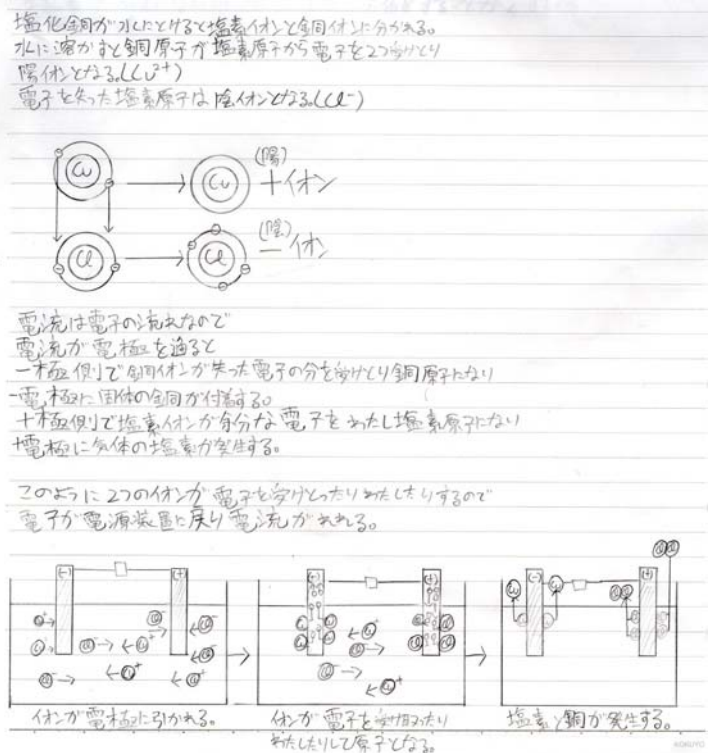 塩化銅が水にとけると塩素イオンと銅イオンに分かれる。
水に溶かすと銅原子が塩素原子から電子を2つ受けとり
陽イオンとなる。(Cu²⁺)
電子を失った塩素原子は陰イオンとなる。(Cl⁻)
Cu
(陽)
Cu
+イオン
Cl
(陰)
Cl
ーイオン
電流は電子の流れなので
電流が電極を通ると
ー極側で銅イオンが失った電子の分を受けとり銅原子になり
ー電極に固体の銅が付着する。
+極側で塩素イオンが余分な電子をわたし塩素原子になり
+電極に気体の塩素が発生する。
このように2つのイオンが電子を受けとったりわたしたりするので
電子が電源装置に戻り電流がながれる。
(-) (+)
(-) (+)
(-) (+)
イオンが電極に引かれる。
イオンが電子を受け取ったり
わたしたりして原子となる。
塩素と銅が発生する。
KOKUYO